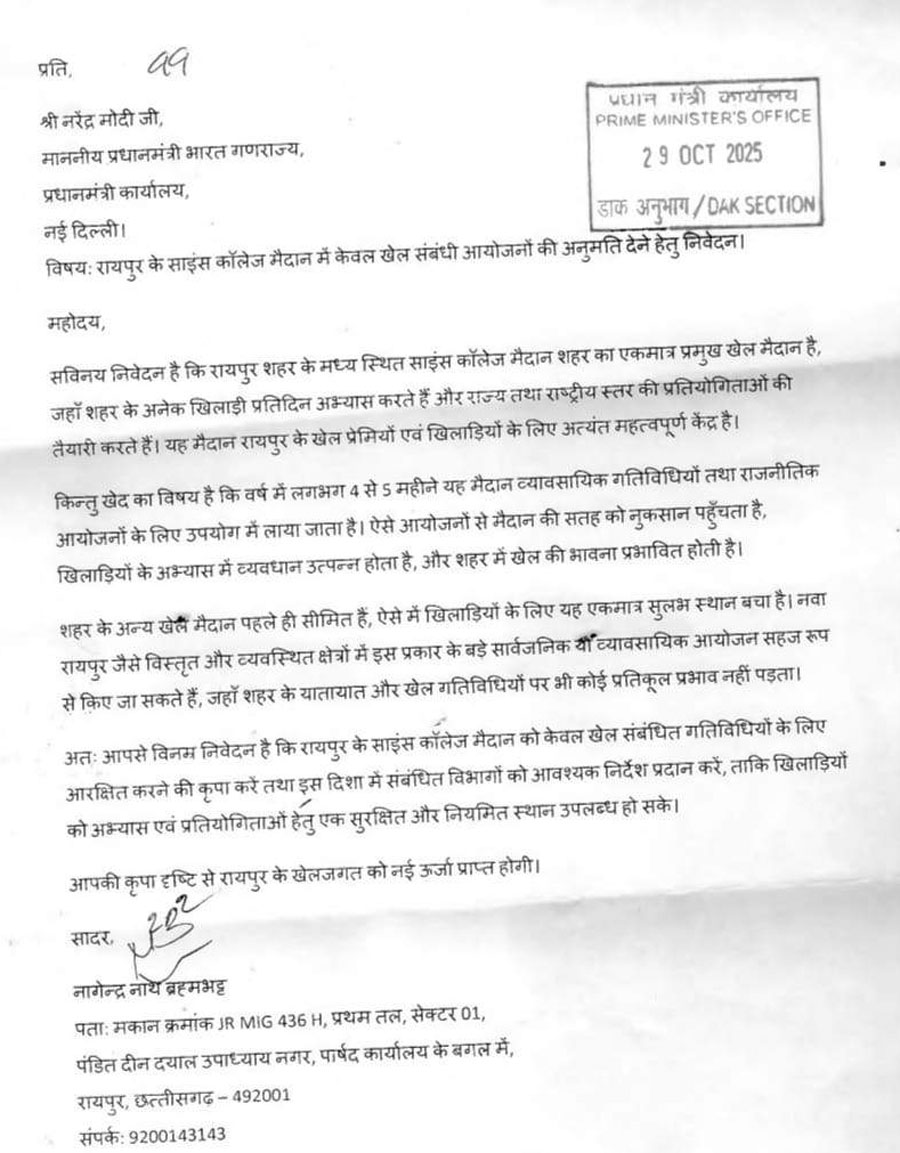 प्रति,
99
श्री नरेंद्र मोदी जी,
माननीय प्रधानमंत्री भारत गणराज्य,
प्रधानमंत्री कार्यालय,
नई दिल्ली।
प्रधान मंत्री कार्यालय
PRIME MINISTER'S OFFICE
29 OCT 2025
डाक अनुभाग/DAK SECTION
विषय: रायपुर के साइंस कॉलेज मैदान में केवल खेल संबंधी आयोजनों की अनुमति देने हेतु निवेदन।
महोदय,
सविनय निवेदन है कि रायपुर शहर के मध्य स्थित साइंस कॉलेज मैदान शहर का एकमात्र प्रमुख खेल मैदान है,
जहाँ शहर के अनेक खिलाड़ी प्रतिदिन अभ्यास करते हैं और राज्य तथा राष्ट्रीय स्तर की प्रतियोगिताओं की
तैयारी करते हैं। यह मैदान रायपुर के खेल प्रेमियों एवं खिलाड़ियों के लिए अत्यंत महत्वपूर्ण केंद्र है।
किन्तु खेद का विषय है कि वर्ष में लगभग 4 से 5 महीने यह मैदान व्यावसायिक गतिविधियों तथा राजनीतिक
आयोजनों के लिए उपयोग में लाया जाता है। ऐसे आयोजनों से मैदान की सतह को नुकसान पहुँचता है,
खिलाड़ियों के अभ्यास में व्यवधान उत्पन्न होता है, और शहर में खेल की भावना प्रभावित होती है।
शहर के अन्य खेल मैदान पहले ही सीमित हैं, ऐसे में खिलाड़ियों के लिए यह एकमात्र सुलभ स्थान बचा है। नवा
रायपुर जैसे विस्तृत और व्यवस्थित क्षेत्रों में इस प्रकार के बड़े सार्वजनिक या व्यावसायिक आयोजन सहज रूप
से किए जा सकते हैं, जहाँ शहर के यातायात और खेल गतिविधियों पर भी कोई प्रतिकूल प्रभाव नहीं पड़ता।
अतः आपसे विनम्र निवेदन है कि रायपुर के साइंस कॉलेज मैदान को केवल खेल संबंधित गतिविधियों के लिए
आरक्षित करने की कृपा करें तथा इस दिशा में संबंधित विभागों को आवश्यक निर्देश प्रदान करें, ताकि खिलाड़ियों
को अभ्यास एवं प्रतियोगिताओं हेतु एक सुरक्षित और नियमित स्थान उपलब्ध हो सके।
आपकी कृपा दृष्टि से रायपुर के खेलजगत को नई ऊर्जा प्राप्त होगी।
सादर,
नागेन्द्र नाथ ब्रह्मभट्ट
पता: मकान क्रमांक JR MiG 436 H, प्रथम तल, सेक्टर 01,
पंडित दीन दयाल उपाध्याय नगर, पार्षद कार्यालय के बगल में,
रायपुर, छत्तीसगढ़ – 492001
संपर्क: 9200143143